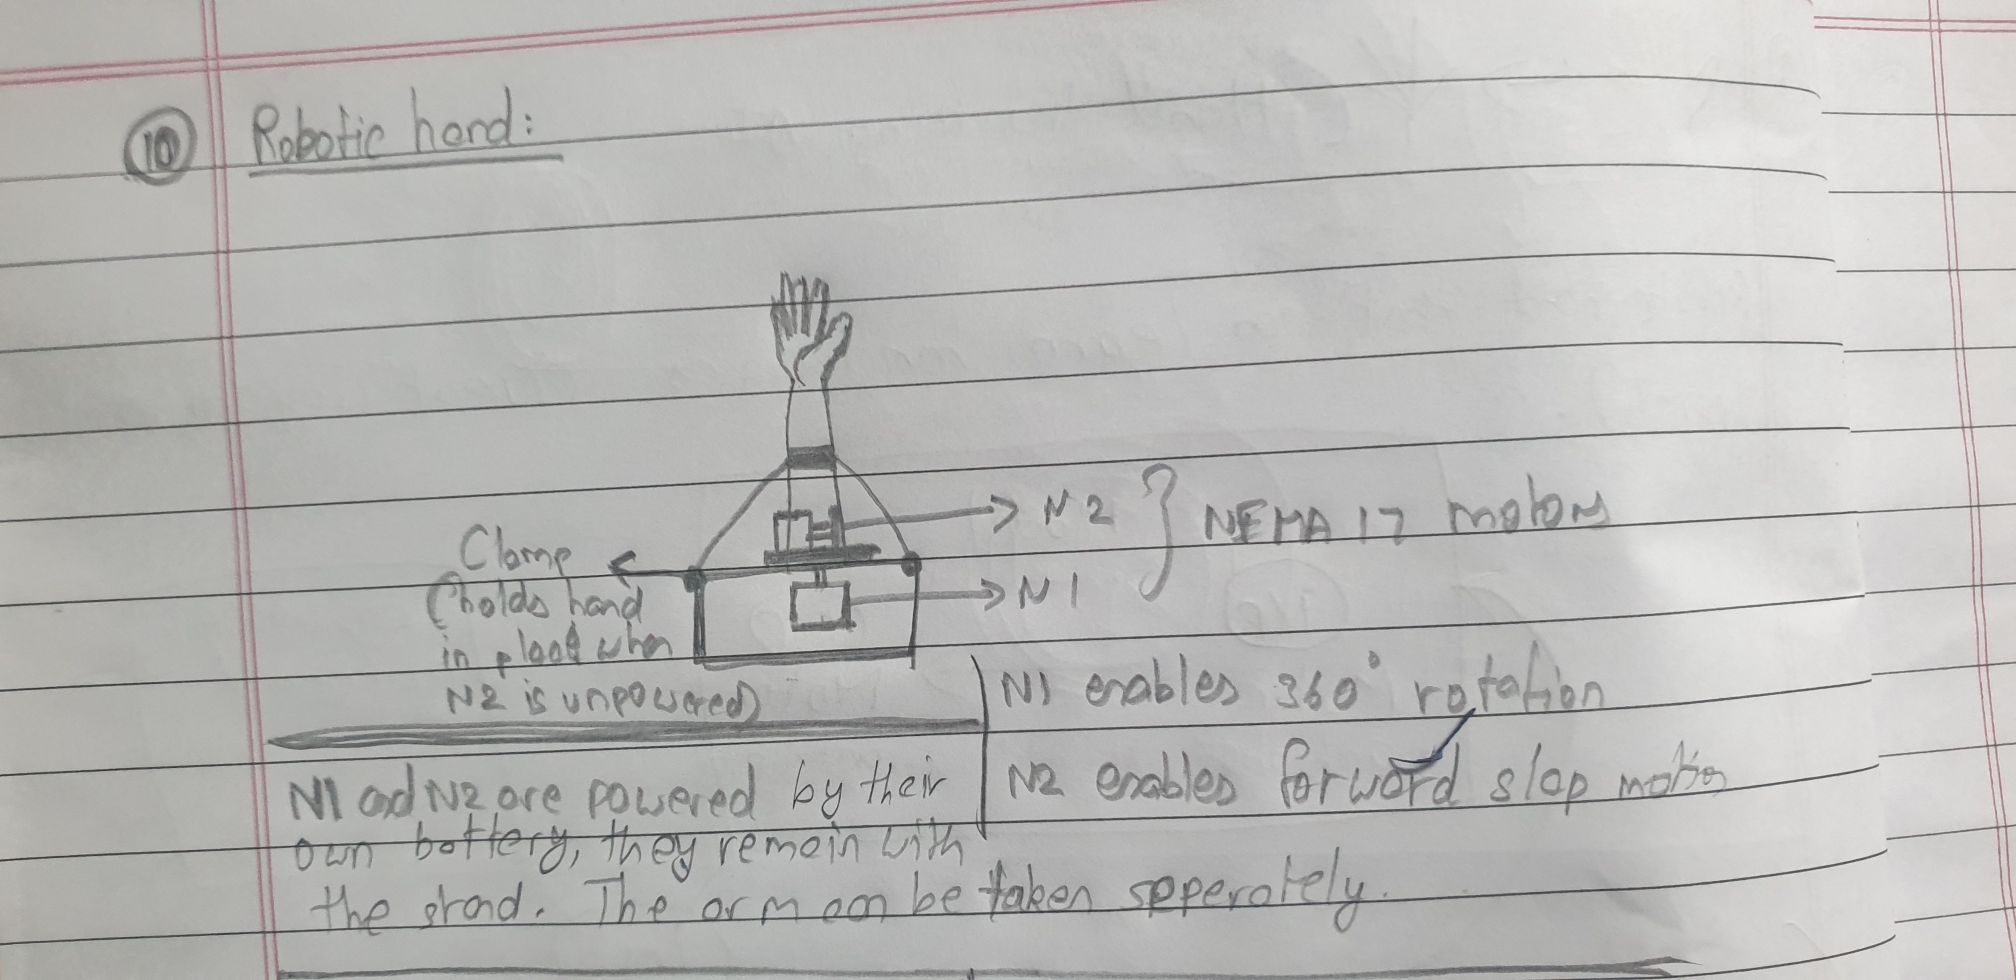 10 Robotic hand:
N2 } NEMA 17 motors
Clamp
(holds hand
in place when
N2 is unpowered)
N1
N1 enables 360° rotation
N2 enables forward slap motion
N1 and N2 are powered by their
own battery, they remain with
the stand. The arm can be taken seperately.